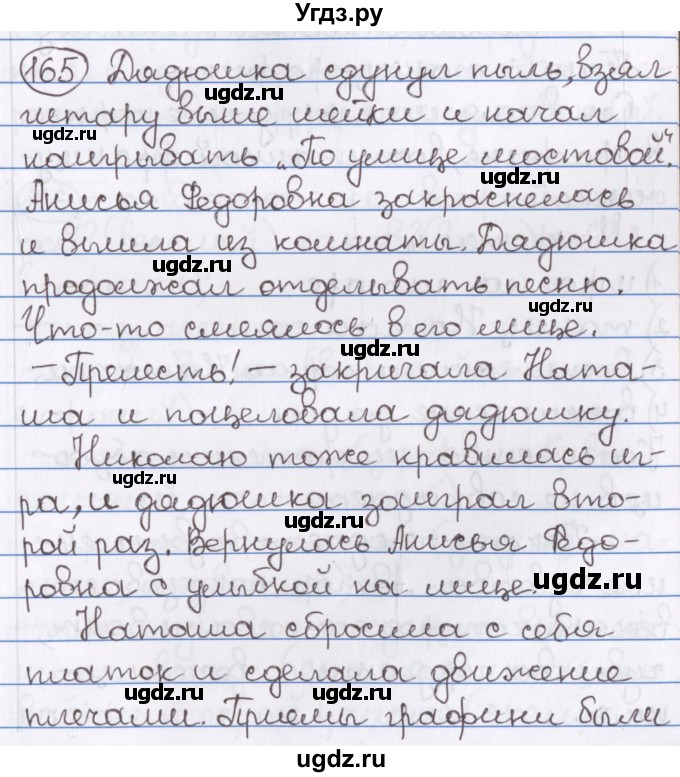 Угдз.ру
165 Дядюшка сдунул пыль, взял
гитару выше шейки и начал
ugdz.ru ugdz.ru
наигрывать „По улице мостовой“.
ugdz.ru
Анисья Федоровна закраснелась
и вышла из комнаты. Дядюшка
ugdz.ru
продолжал отделывать песню.
ugdz.ru
Что-то смеялось в его лице.
ugdz.ru
– Прелесть! – закричала Ната-
ша и поцеловала дядюшку.
Николаю тоже нравилась иг-
ugdz.ru
ра, и дядюшка заиграл вто-
ugdz.ru
рой раз. Вернулась Анисья Федо-
ровна с улыбкой на лице.
ugdz.ru
Наташа сбросила с себя
платок и сделала движение
ugdz.ru ugdz.ru
плечами. Приемы графини были
ugdz.ru